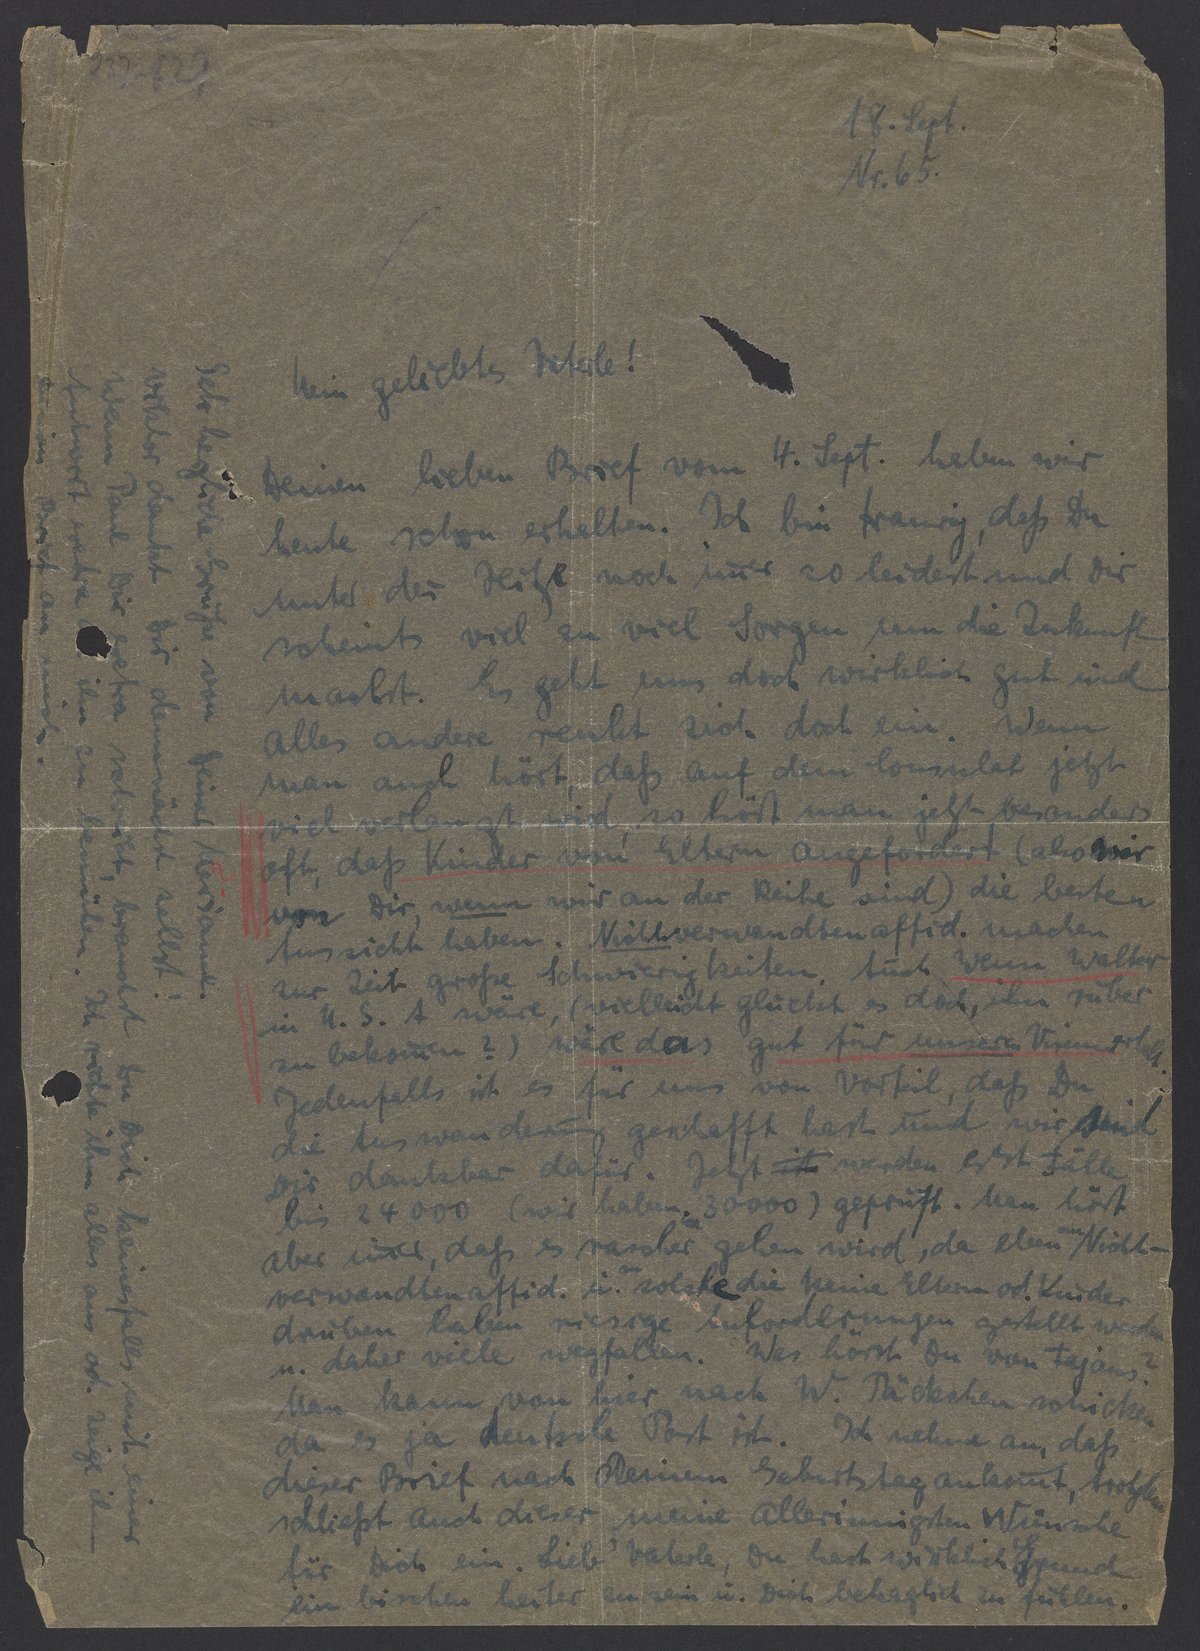 18. Sept.
Nr. 65.
Mein geliebtes Vaterle!
Deinen lieben Brief vom 4. Sept. haben wir
heute schon erhalten. Ich bin traurig, daß Du
unter der Hitze noch immer so leidest und Dir
scheints viel zu viel Sorgen um die Zukunft
machst. Es geht uns doch wirklich gut und
alles andere renkt sich doch ein. Wenn
man auch hört, daß auf dem Consulat jetzt
viel verlangt wird, so hört man jetzt besonders
oft, daß Kinder von Eltern angefordert (also wir
von Dir, wenn wir an der Reihe sind) die besten
Aussicht haben. Nichtverwandtenaffid. machen
zur Zeit große Schwierigkeiten. Auch wenn Walter
in U. S. A wäre, (vielleicht glückt es doch, ihn rüber
zu bekommen?) wäre das gut für unsere
Jedenfalls ist es für uns von Vorteil, daß Du
die Auswanderung geschafft hast und wir sind
Dir dankbar dafür. Jetzt werden erst Fälle
bis 24000 (wir haben 30000) geprüft. Man hört
aber immer, daß es rascher gehen wird, da eben an Nicht-
verwandtenaffid. u. an solche die keine Eltern od. Kinder
drüben haben riesige Anforderungen gestellt werden
u. daher viele wegfallen. Was hörst Du von
Man kann von hier nach W. Päckchen schicken
da es ja deutsche Post ist. Ich nehme an, daß
dieser Brief nach Deinem Geburtstag ankommt, trotzdem
schließt auch dieser meine allerinnigsten Wünsche
für Dich ein. Lieb' Vaterle, Du hast wirklich Grund
ein bischen heiter zu sein u. Dich behaglich zu fühlen.
Sehr herzliche Grüße von Deiner Marianne.
Viktor dankt Dir demnächst selbst!
Wenn Paul Dir extra schreibt, brauchst Du Dich keinesfalls mit einer
Antwort extra an ihn zu bemühen. Ich richte ihm alles aus od. zeige ihm
Deinen Brief an mich.